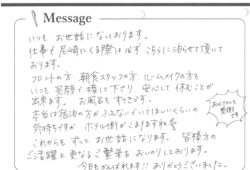 Message
いつも お世話になっております。
仕事で 尼崎にくる際は必ず こちらに泊らせて頂いて
おります。
フロントの方 朝食スタッフの方 ルームメイクの方も
いつも 笑顔で接して下さり 安心して 休むことが
出来ます。 お風呂も すてきです。
本当は宿泊の方が ふえないでいてほしいくらいの
気持ちですが ホテル側がこまりますね
これからも ずっと お世話になります。 皆様方の
ご活躍と 更なるご繁栄を おいのりしております。
今日もがんばれます!! ありがとうございました。